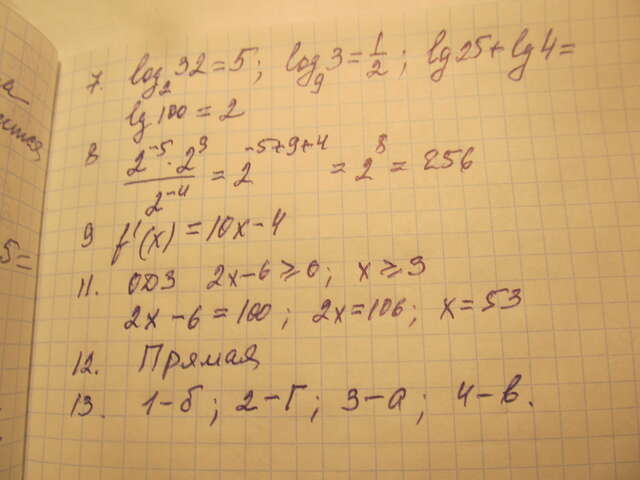 7. log₂32=5; log₉3=1/2; lg25+lg4=
lg100=2
8 2⁻⁵·2⁹/2⁻⁴ = 2⁻⁵⁺⁹⁺⁴ = 2⁸ = 256
9 f'(x) = 10x-4
11. ОДЗ 2x-6≥0; x≥3
2x-6=100; 2x=106; x=53
12. Прямая
13. 1-б; 2-Г; 3-а; 4-в.
5=